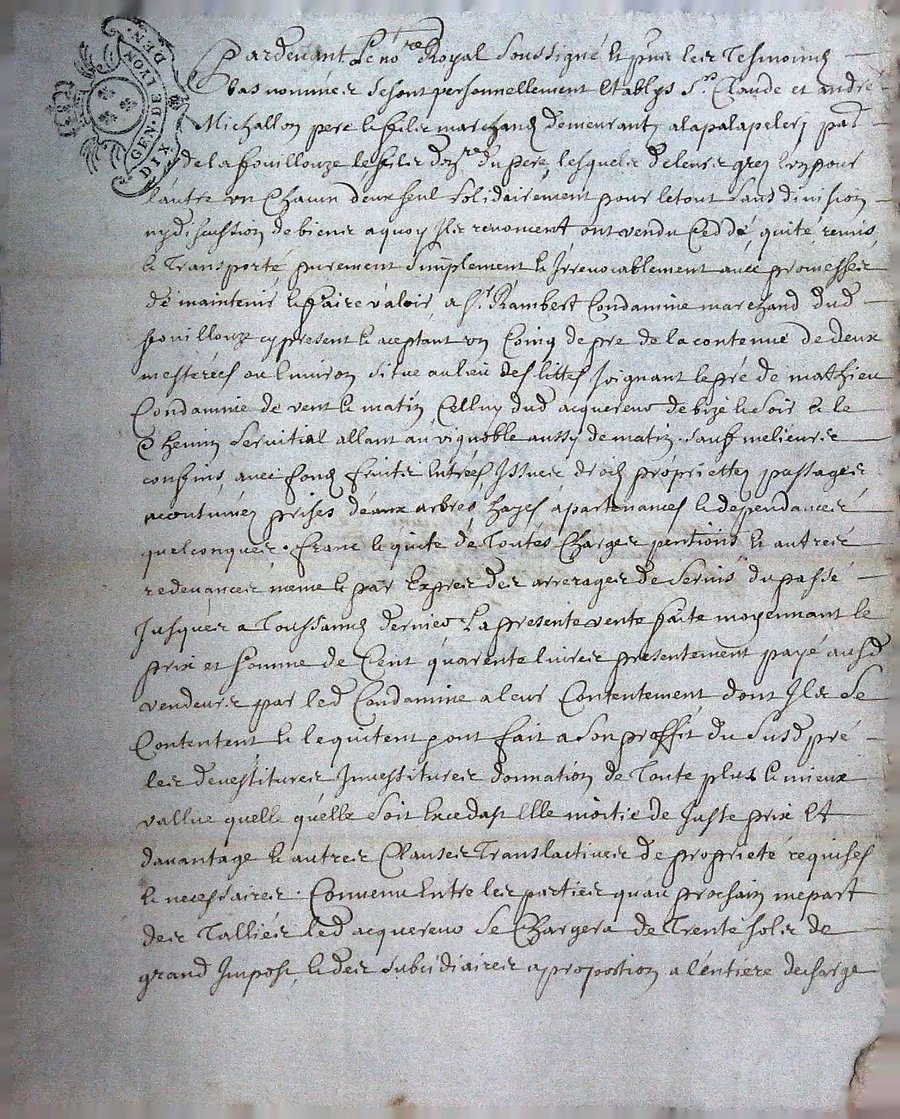 GEN. DE LYON
DIX DEN.
Pardevant Le no.re Royal Soussigné & pnr les Tesmoins
bas nommés se sont personnellement Etablys S.rs Claude et andré
Michallon pere & fils marchands demeurants a la palapelery par
de la fouillouze le fils du pere, lesquels de leurs grez l'un pour
l'autre un Chacun deux seul solidairement pour le tout sans division
ny discustion de biens a quoy Ils renoncent ont vendu Ceddé, quité remis,
& Transporté purement simplement & Irrevocablement avec promesses
de maintenir & faire valoir, a S.r Rambert Condamine marchand dud
fouillouze cy present & aceptant un Coing de pre de la contenue de deux
mesterées ou Environ situe au lieu des littes joignant le pré de mathieu
Condamine de vent & matin Celluy dud acquereur de bize & soir & le
Chemin servitial allant au vignoble aussy de matin sauf melieurs
confins, avec fond fruits Entrées, Issues droits proprietten passages
acoutumés prises deaux arbres hayes apartenances & dependances
quelconques. franc & quite de Toutes Charges pentions & autres
redevances meme & par Expres des arrerages de servis du passé
Jusques a Toussaincts dernier La presente vente faite moyennant le
prix et somme de Cent quarente livres presentement payé ausd
vendeurs par led Condamine a leur Contentement dont Ils se
Contentent & le quitent, ont fait a son proffit du susd pré
les devestitures Investitures donnation de Toute plus & mieux
vallue quelle quelle soit Excedast Elle moitié de Juste prix Et
davantage & autres Clauses Translactives de proprieté requises
& necessaires. Convenu Entre les parties quau prochain mepart
des Tallies led acquereur se Chargera de Trente sols de
grand Impost, & des subsidiaires a proportion a l'entiere decharge